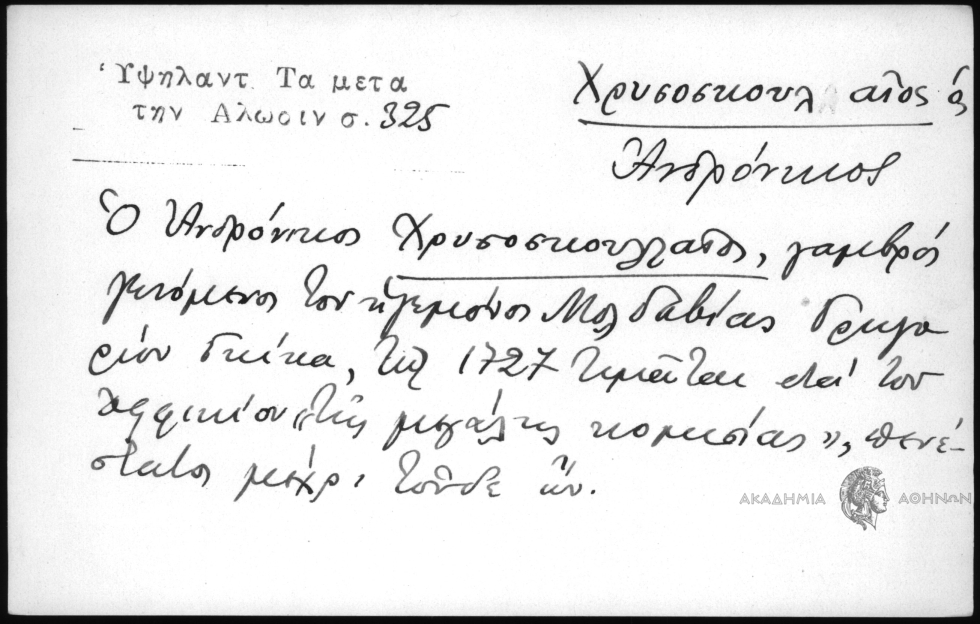 Ὑψηλαντ. Τα μετα
την Αλωσιν σ. 325
Χρυσοσκουλαῖος ὁ
Ἀνδρόνικος
Ὁ Ἀνδρόνικος Χρυσοσκουλλαῖος, γαμβρός
γενόμενος τοῦ ἡγεμόνος Μολδαβίας Γρηγο
ρίου Γκίκα, τῷ 1727 τιμᾶται διά τοῦ
ὀφφικίου «τῆς μεγάλης κομισίας», πενέ-
στατος μέχρι τοῦδε ὤν.
ΑΚΑΔΗΜΙΑ ΑΘΗΝΩΝ